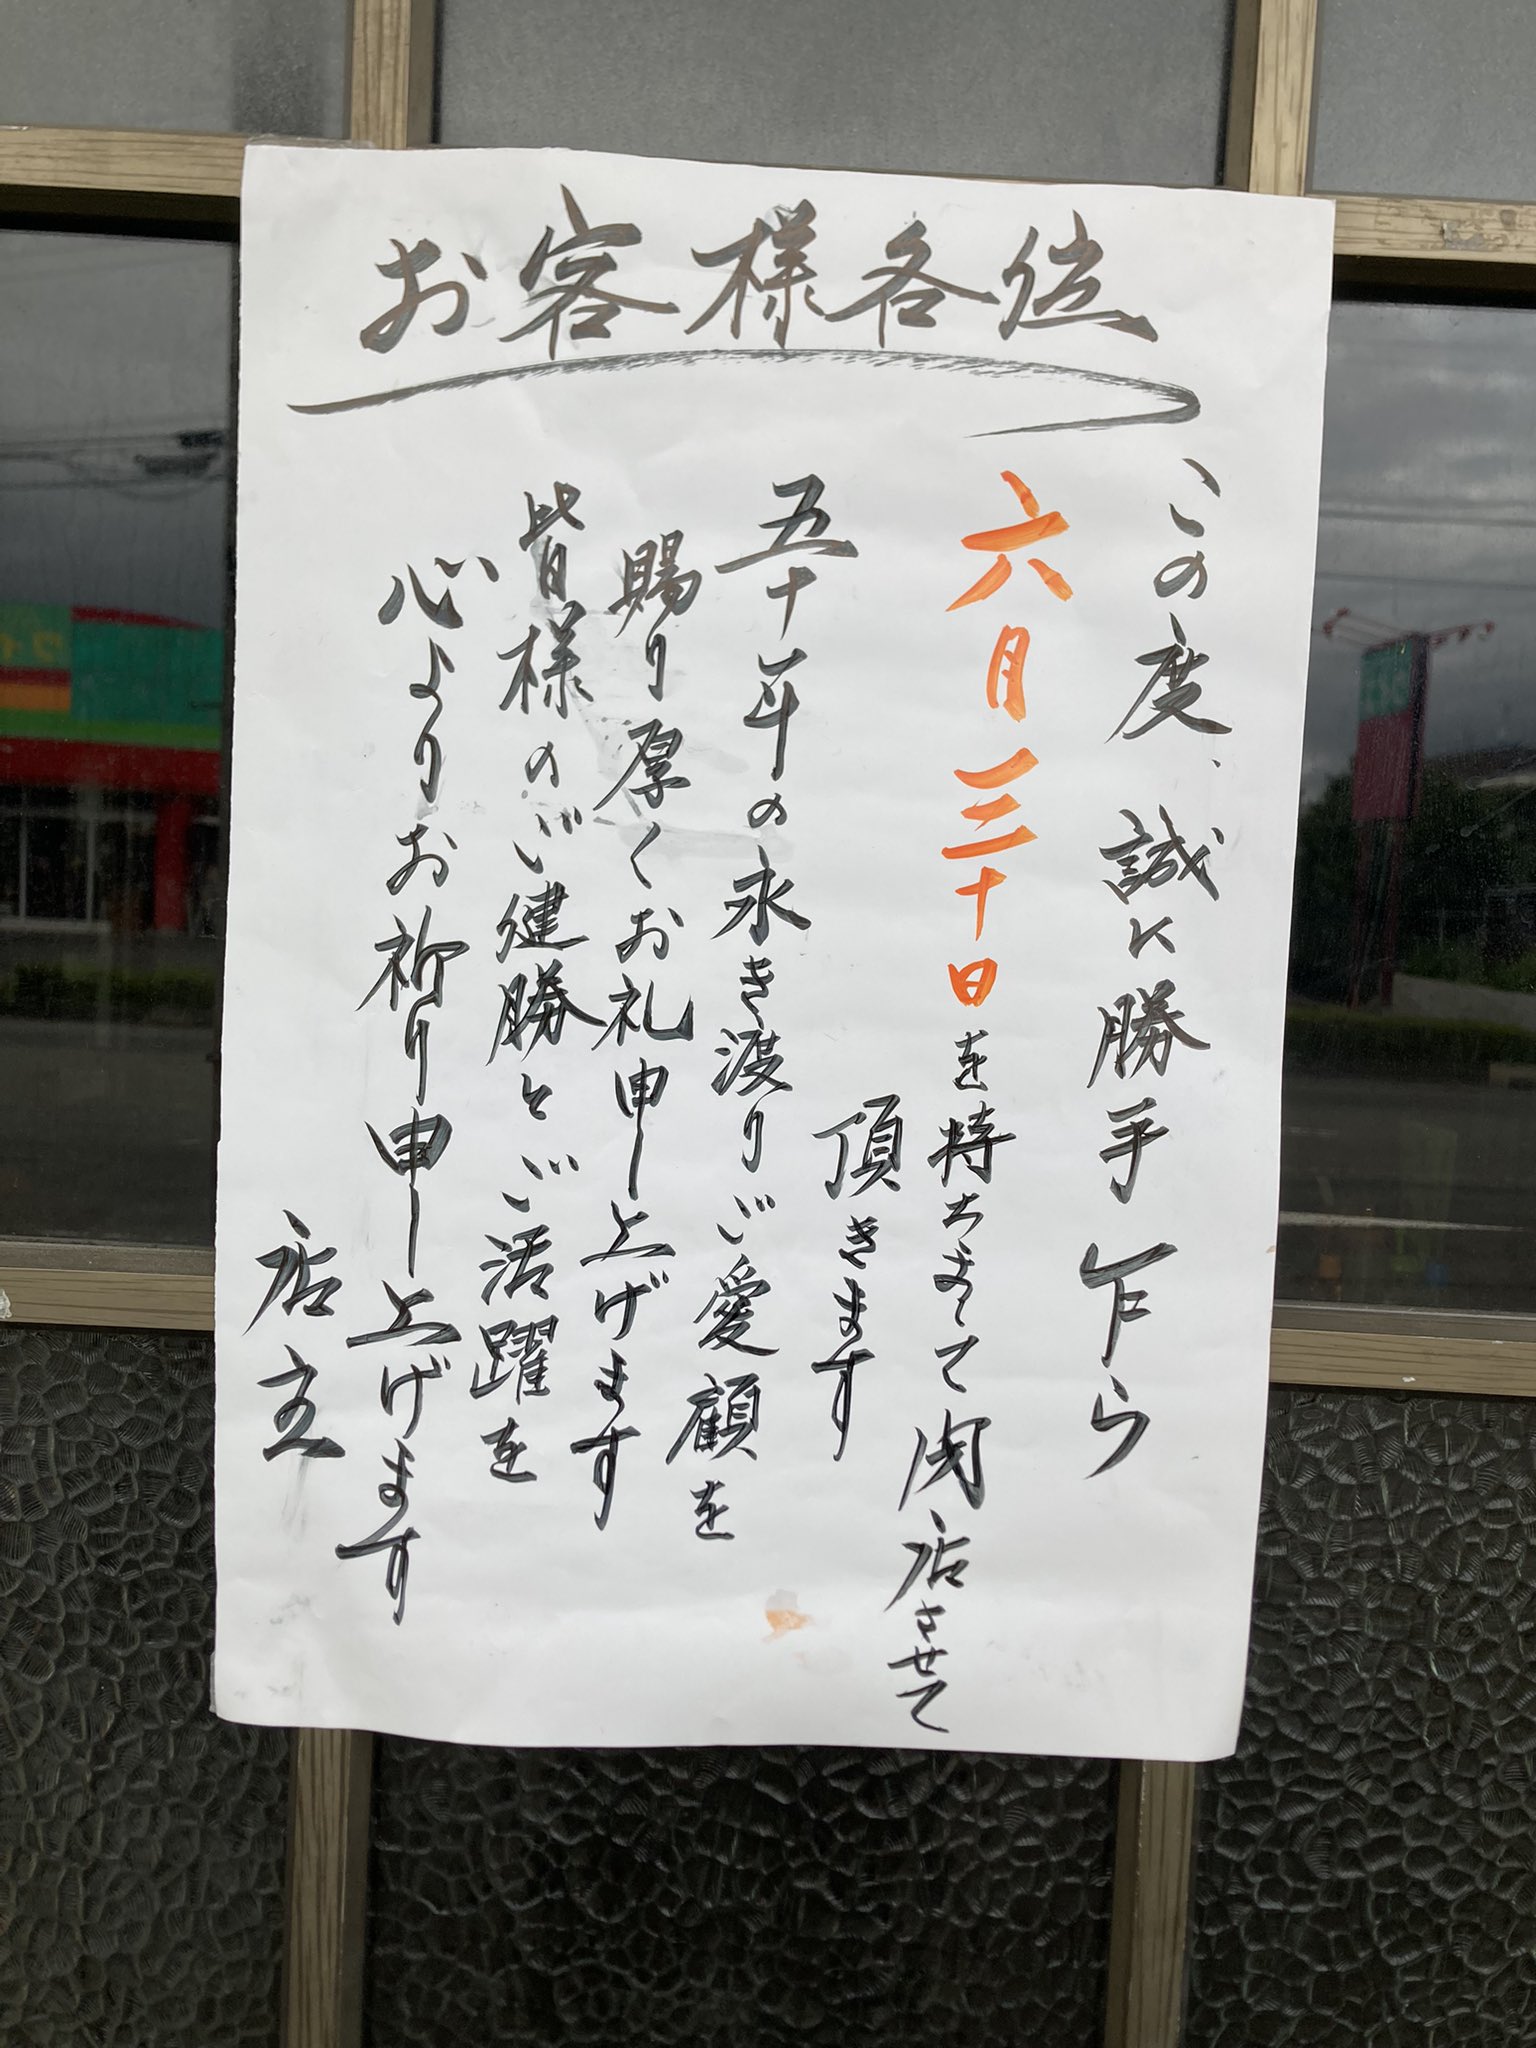 お客様各位
この度、誠に勝手乍ら
六月三十日を持ちまして閉店させて
頂きます
五十年の永き渡りご愛顧を
賜り厚くお礼申し上げます
皆様のご健勝とご活躍を
心よりお祈り申し上げます
店主